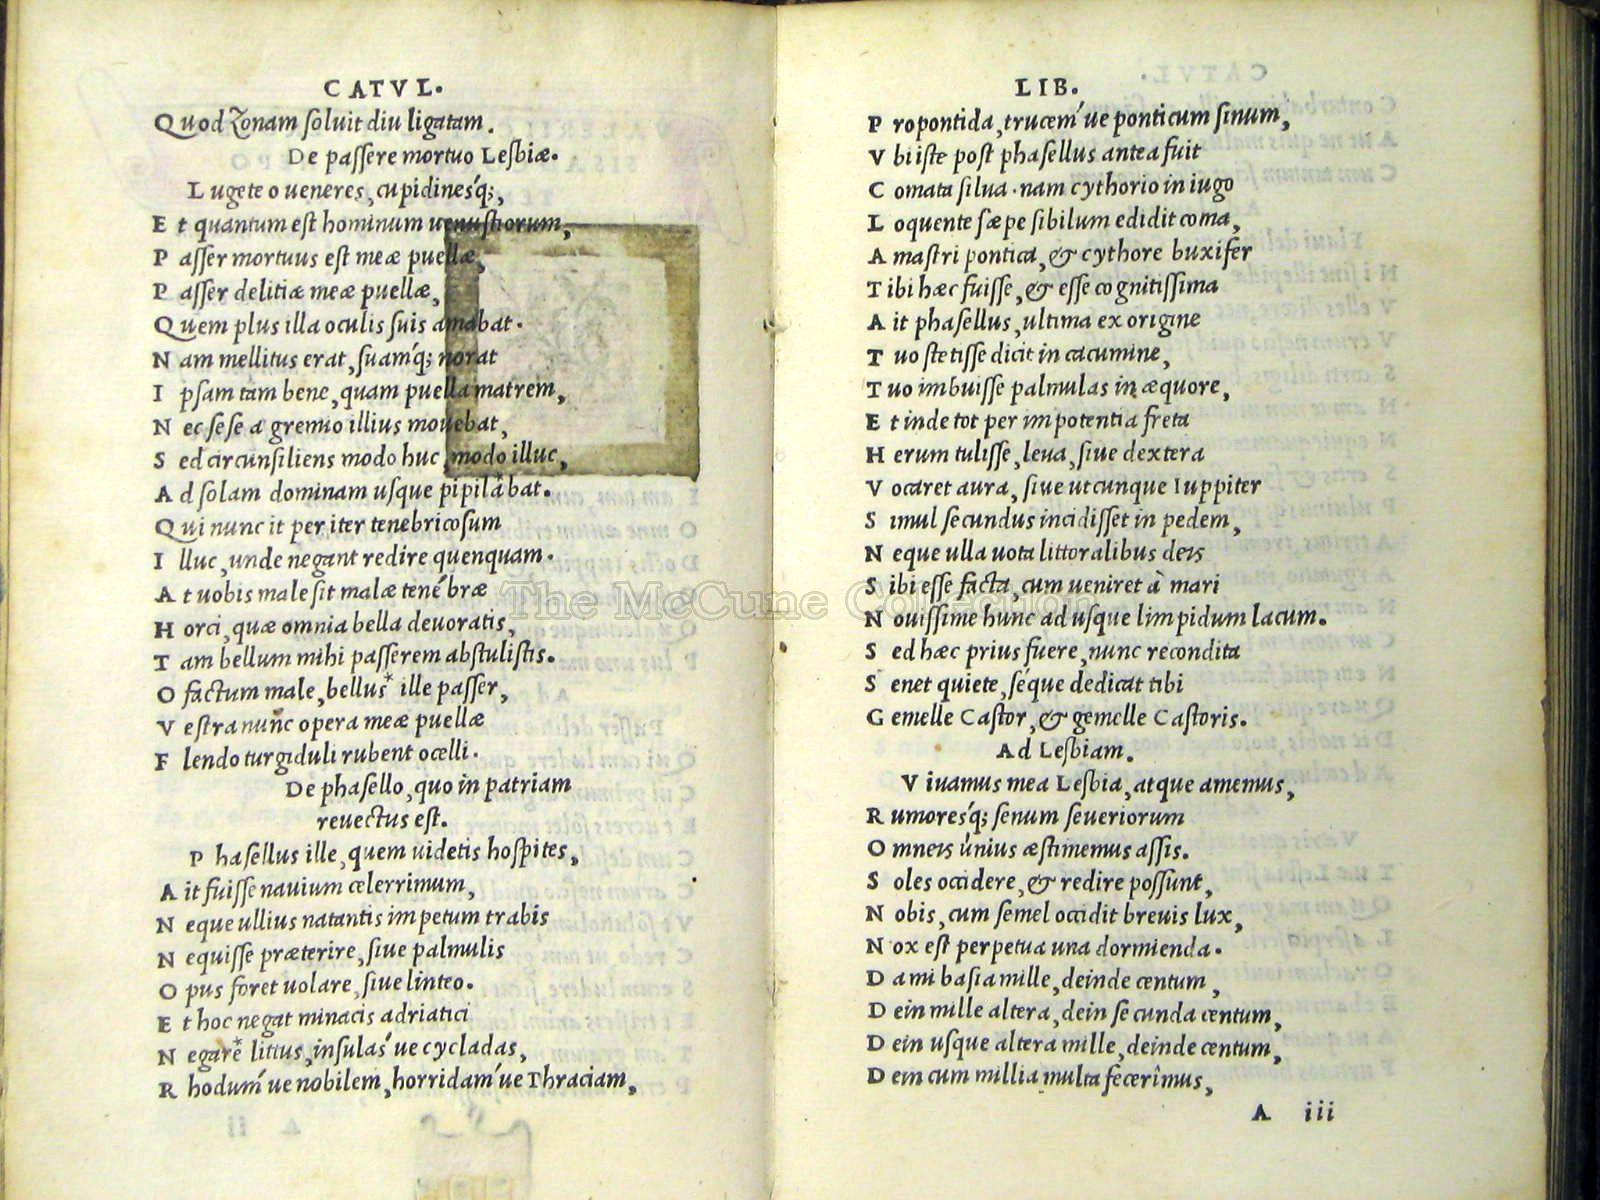 CATVL.
Quod Zonam soluit diu ligatam.
De passere mortuo Lesbiæ.
Lugete o ueneres, cupidinesq́;,
Et quantum est hominum uenustiorum,
Passer mortuus est meæ puellæ,
Passer delitiæ meæ puellæ,
Quem plus illa oculis suis amabat.
Nam mellitus erat, suamq́; norat
Ipsam tam bene, quam puella matrem,
Nec sese a gremio illius mouebat,
Sed circunsiliens modo huc, modo illuc,
Ad solam dominam usque pipilabat.
Qui nunc it per iter tenebricosum
Illuc, unde negant redire quenquam.
At uobis male sit malæ tene´bræ
Horci, quæ omnia bella deuoratis,
Tam bellum mihi passerem abstulistis.
O factum male, bellus* ille passer,
Vestra nunc opera meæ puellæ
Flendo turgiduli rubent ocelli.
De phasello, quo in patriam
reuectus est.
Phasellus ille, quem uidetis hospites,
Ait fuisse nauium celerrimum,
Neque ullius natantis impetum trabis
Nequisse præterire, siue palmulis
Opus foret uolare, siue linteo.
Et hoc negat minacis adriatici
Negare* littus, insulas´ue cycladas,
Rhodum´ue nobilem, horridam´ue Thraciam,
LIB.
Propontida, trucem´ue ponticum sinum,
Vbi iste post phasellus antea fuit
Comata silua. nam cythorio in iugo
Loquente sæpe sibilum edidit coma,
Amastri pontica, & cythore buxifer
Tibi hæc fuisse, & esse cognitissima
Ait phasellus, ultima ex origine
Tuo stetisse dicit in cacumine,
Tuo imbuisse palmulas in æquore,
Et inde tot per impotentia freta
Herum tulisse, leua, siue dextera
Vocaret aura, siue utcunque Iuppiter
Simul secundus incidisset in pedem,
Neque ulla uota littoralibus deis
Sibi esse facta, cum ueniret à mari
Nouissime hunc ad usque limpidum lacum.
Sed hæc prius fuere, nunc recondita
Senet quiete, séque dedicat tibi
Gemelle Castor, & gemelle Castoris.
Ad Lesbiam.
Viuamus mea Lesbia, atque amemus,
Rumoresq́; senum seueriorum
Omneis unius æstimemus assis.
Soles occidere, & redire possunt,
Nobis, cum semel occidit breuis lux,
Nox est perpetua una dormienda.
Da mi basia mille, deinde centum,
Dein mille altera, dein secunda centum,
Dein usque altera mille, deinde centum,
Dein cum millia multa fecerîmus,
A iii
The McCune Collection